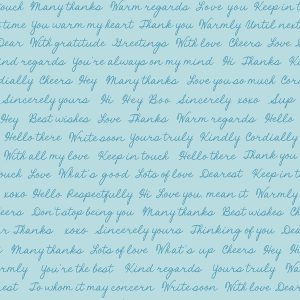 touch Many thanks Warm regards Love you Keep in t
time You warm my heart Thank you Warmly Until next
Dear With gratitude Greetings With love Cheers Love
ind regards You're always on my mind Hi Thanks K
dially Cheers Hey Many thanks Love you so much Cord
Sincerely yours Hi Hey Boo Sincerely xoxo Sup
Hey Best wishes Love Thanks Warm regards Hello
Hello there Write soon Yours truly Kindly Cordially
With all my love Keep in touch Hello there Thank you
touch Love What's good Lots of love Dearest Keep in t
xoxo Hello Respectfully Hi Love you, mean it Warmly
eers Don't stop being you Many thanks Best wishes C
r Thanks xoxo Sincerely yours Thinking of you Dea
Many thanks Lots of love What's up Cheers Hey H
rmly You're the best Kind regards Yours truly W
est To whom it may concern Write soon With love Dear